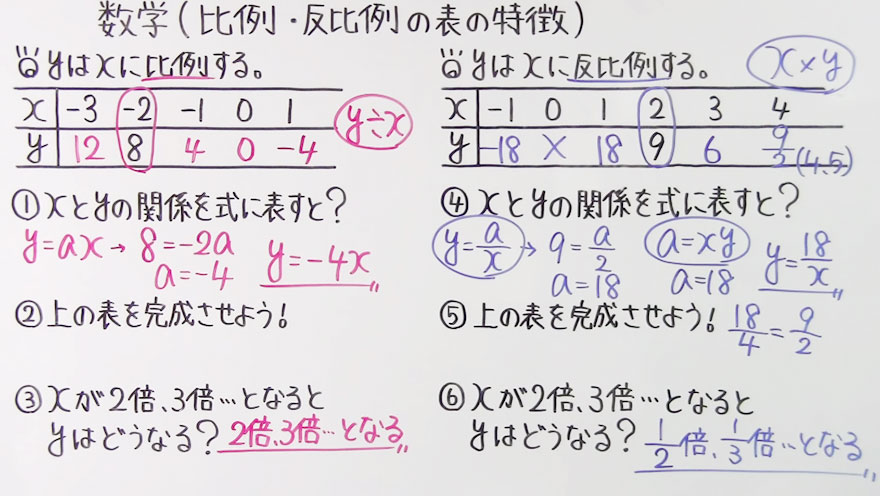 数学(比例・反比例の表の特徴)
yはxに比例する。
x -3 -2 -1 0 1
y 12 8 4 0 -4
y÷x
①xとyの関係を式に表すと?
y=ax→8=-2a
a=-4
y=-4x
②上の表を完成させよう!
③xが2倍、3倍…となると
yはどうなる?2倍、3倍…となる
yはxに反比例する。
x×y
x -1 0 1 2 3 4
y -18 × 18 9 6 9/2(4.5)
④xとyの関係を式に表すと?
y=a/x→9=a/2
a=18
a=xy
a=18
y=18/x
⑤上の表を完成させよう!
18/4=9/2
⑥xが2倍、3倍…となると
yはどうなる?1/2倍、1/3倍…となる